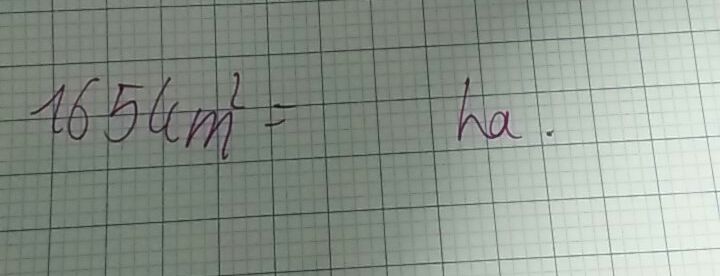 1654m² = ha.